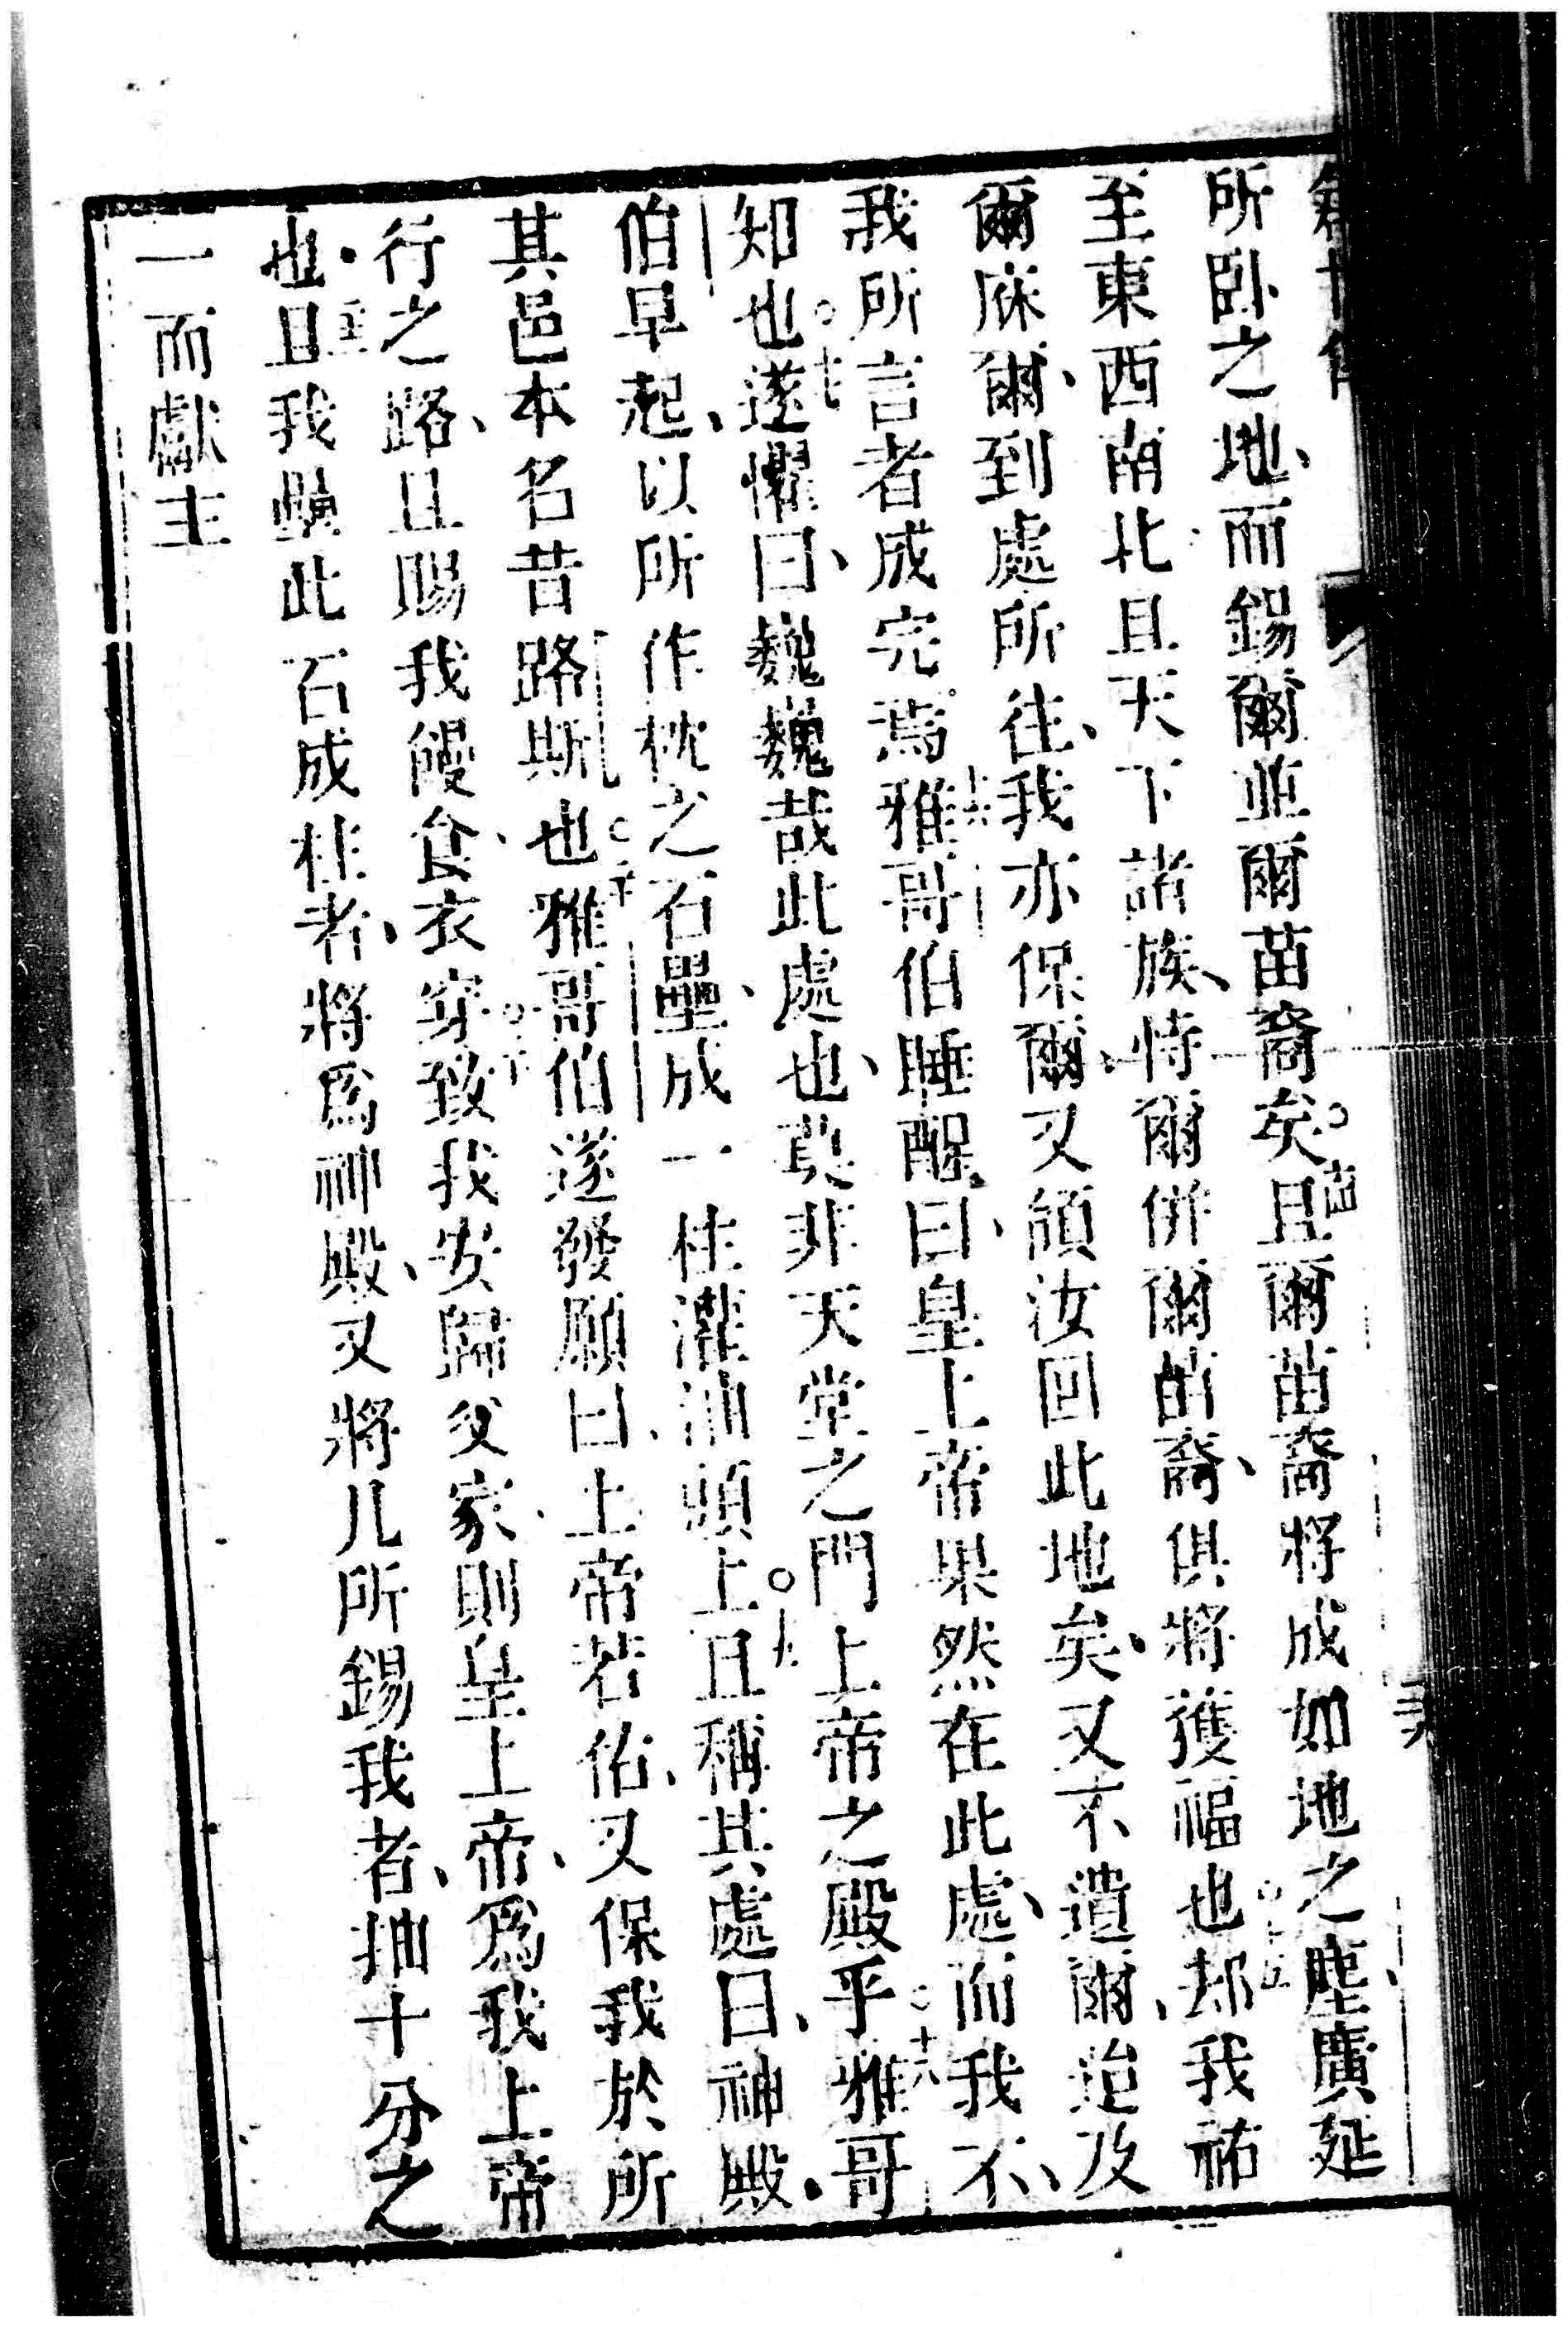 所卧之地、而錫爾並爾苗裔矣○十四且爾苗裔將成如地之塵、廣延
至東西南北且天下諸族、恃爾併爾苗裔、俱將獲福也○十五却我祐
爾庥爾、到處所往、我亦保爾、又領汝回此地矣、又不遺爾、迨及
我所言者成完焉○十六雅哥伯睡醒、曰、皇上帝果然在此處、而我不、
知也○十七遂懼曰、巍巍哉此處也、莫非天堂之門上帝之殿乎○十八雅哥
伯早起、以所作枕之石壘、成一柱灌油頭上○十九且稱其處曰、神殿、
其邑本名昔路斯也○二十雅哥伯遂發願曰、上帝若佑、又保我於所
行之路、且賜我饅食、衣穿○二十一致我安歸父家、則皇上帝、爲我上帝
也、○二十二且我豎此石成柱者、將爲神殿、又將凡所錫我者、抽十分之
一而獻主